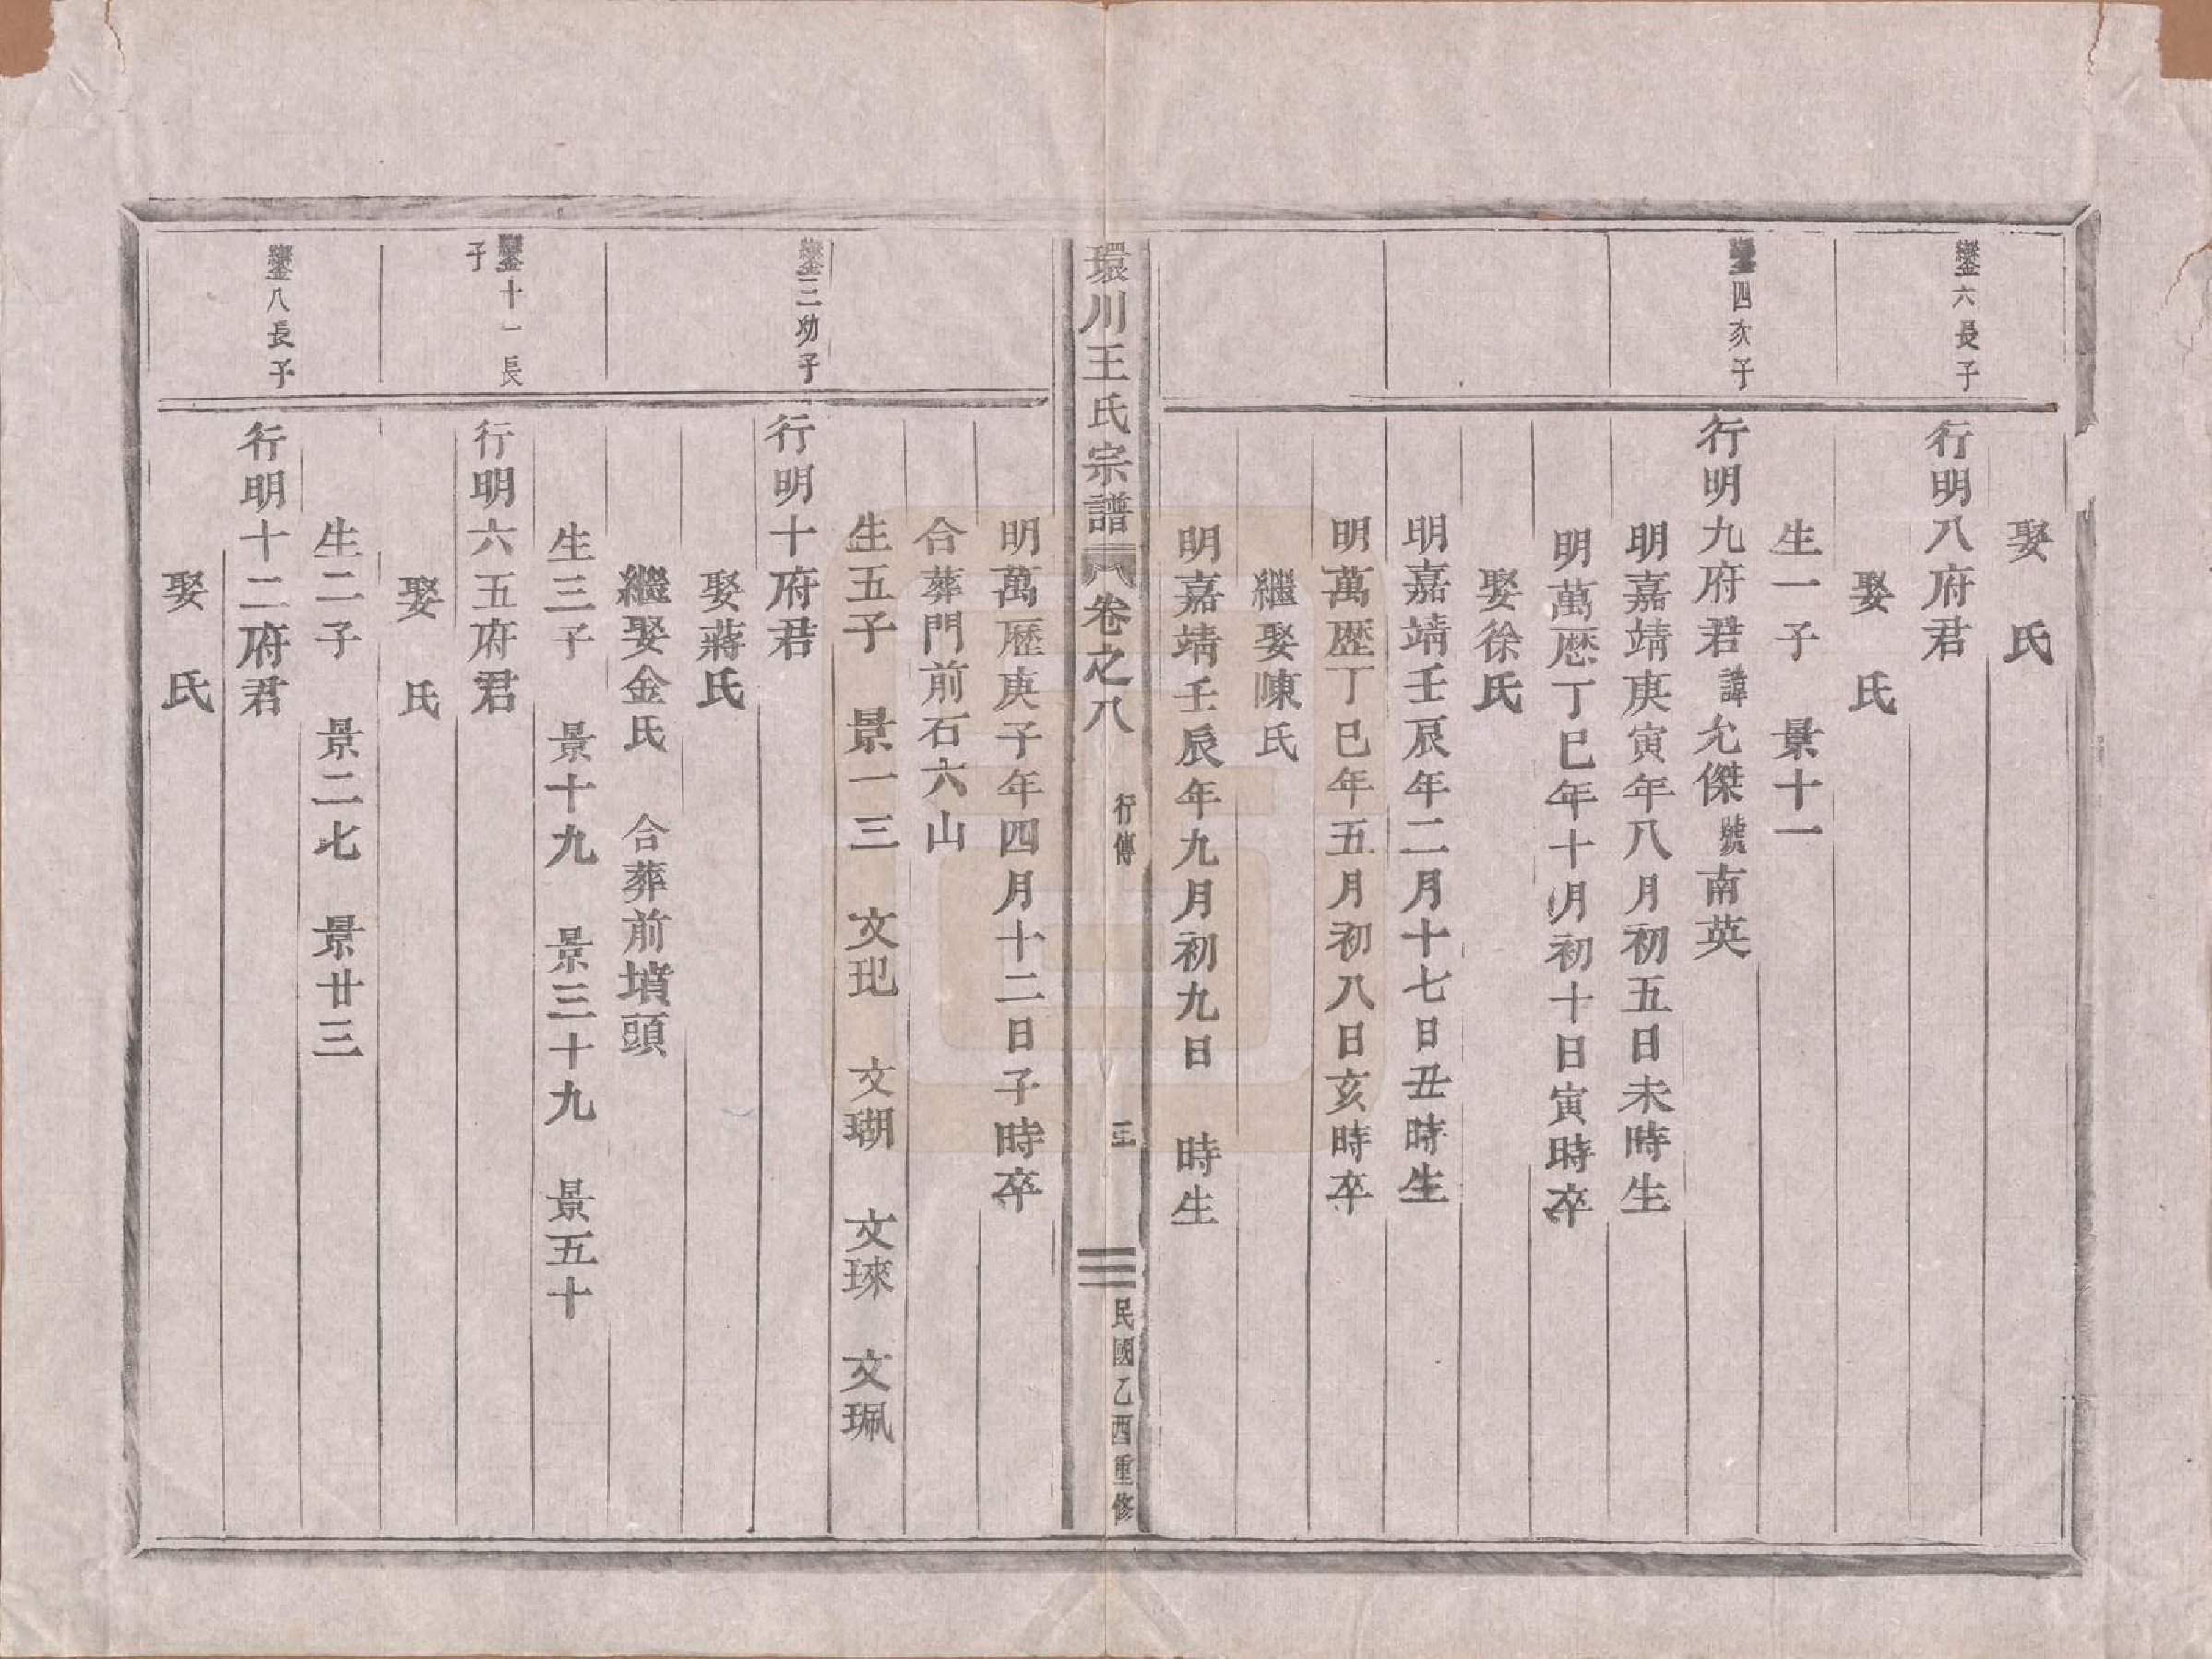 娶　氏
鑾六長子
行明八府君
娶　氏
生一子　景十一
鑾四次子
行明九府君諱允傑號南英
明嘉靖庚寅年八月初五日未時生
明萬歷丁巳年十月初十日寅時卒
娶徐氏
明嘉靖壬辰年二月十七日丑時生
明萬歷丁巳年五月初八日亥時卒
繼娶陳氏
明嘉靖壬辰年九月初九日　時生
環川王氏宗譜　卷之八　行傳　三　民國乙酉重修
明萬歷庚子年四月十二日子時卒
合葬門前石六山
生五子　景一三　文玘　文瑚　文琜　文珮
鑾三幼子
行明十府君
娶蔣氏
繼娶金氏　合葬前墳頭
生三子　景十九　景三十九　景五十
鑾十一長子
行明六五府君
娶　氏
生二子　景二七　景廿三
鑾八長子
行明十二府君
娶　氏